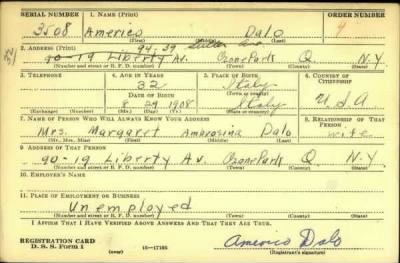 SERIAL NUMBER 1. NAME (Print) ORDER NUMBER
3508 Americo Dalo 9
(First) (Middle) (Last)
2. ADDRESS (Print) 94-39
90-19 Liberty Av. Ozone Park Q. N.Y.
(Number and street or R. F. D. number) (Town) (County) (State)
3. TELEPHONE 4. AGE IN YEARS 5. PLACE OF BIRTH 6. COUNTRY OF CITIZENSHIP
32 Italy
(Town or county)
DATE OF BIRTH
8 29 1908 Italy U.S.A
(Exchange) (Number) (Mo.) (Day) (Yr.) (State or country)
7. NAME OF PERSON WHO WILL ALWAYS KNOW YOUR ADDRESS 8. RELATIONSHIP OF THAT PERSON
Mrs. Margaret Ambrosina Dalo wife
(Mr., Mrs., Miss) (First) (Middle) (Last)
9. ADDRESS OF THAT PERSON
90-19 Liberty Av. Ozone Park Q N.Y.
(Number and street or R. F. D. number) (Town) (County) (State)
10. EMPLOYER'S NAME
11. PLACE OF EMPLOYMENT OR BUSINESS
Unemployed
(Number and street or R. F. D. number) (Town) (County) (State)
I AFFIRM THAT I HAVE VERIFIED ABOVE ANSWERS AND THAT THEY ARE TRUE.
REGISTRATION CARD
D. S. S. Form 1 (over) 16-17105 Americo Dalo
(Registrant's signature)